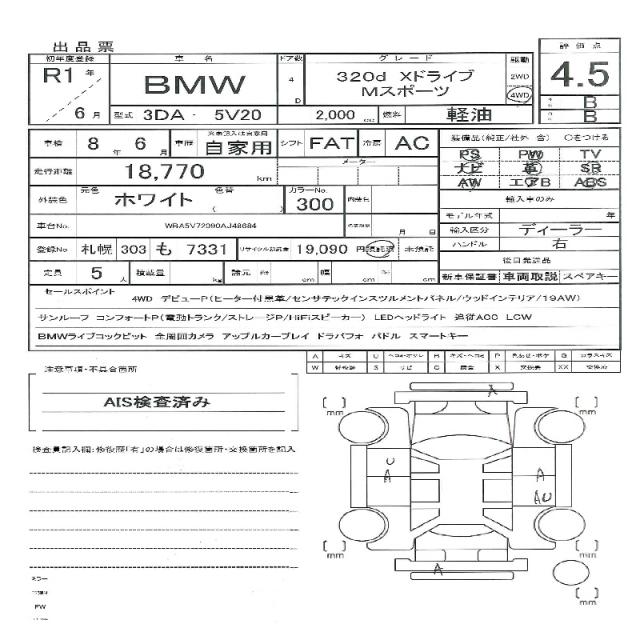 出品票
初年度登録 車名 ドア数 グレード 駆動 評価点
R1年 BMW 4 D 320d Xドライブ 2WD 4WD 4.5
Mスポーツ
6月 型式 3DA - 5V20 2,000 cc 燃料 軽油 B
B
車検 8年6月 車歴 自家用 シフト FAT 冷房 AC 装備品(純正/社外 含) ○をつける
走行距離 18,770 km メーター PS PW TV
ナビ 革 SR
AW エアB ABS
外装色 元色 ホワイト 色替 カラーNo. 300 輸入車のみ
モデル年式 年
車台No. 月 日 輸入区分 ディーラー
登録No 札幌 303 も 7331 リサイクル預託金 19,090 円 預託済 未預託 ハンドル 右
後日発送品
定員 5人 積載量 kg 諸元 cm 幅 cm cm 新車保証書 車両取説 スペアキー
セールスポイント
4WD デビューP(ヒーター付黒革/センサテックインスツルメントパネル/ウッドインテリア/19AW)
サンルーフ コンフォートP(電動トランク/ストレージP/HiFiスピーカー) LEDヘッドライト 追従ACC LCW
BMWライブコックピット 全周囲カメラ アップルカープレイ ドラパフォ パドル スマートキー
A U H P G
W S C X XX
注意事項・不具合箇所
AIS検査済み
検査員記入欄:修復歴「有」の場合は修復箇所・交換箇所を記入
A
mm mm
U
A
A
AU
mm mm
A
mm
ミラー
PW